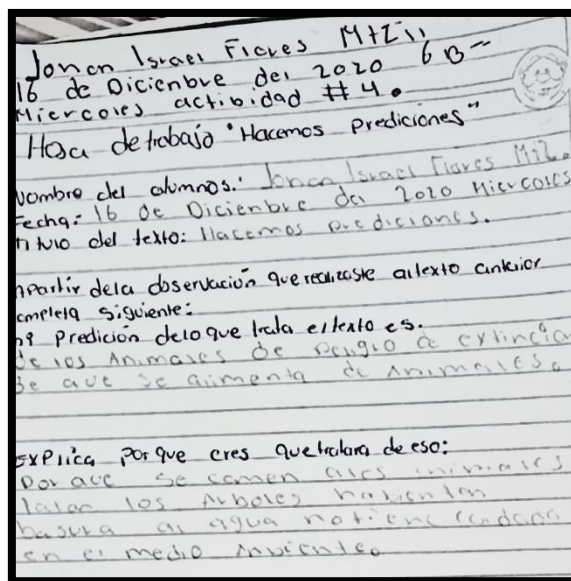 Jonan Israel Flores Mtz
16 de Dicienbre del 2020 6 B
Miercoles actibidad #4.
Hoja de trabajo "Hacemos prediciones"
Nombre del alumnos: Jonan Israel Flores Mtz.
Fecha: 16 de Dicienbre del 2020 Miercoles
titulo del texto: Hacemos prediciones.
apartir dela observación que realizaste al texto anterior
completa siguiente:
predición delo que trata el texto es.
de los Animales de peligro de extincion
de que se alimenta de Animales.
Explica por que cres que tratara de eso:
por que se comen alos animales
talan los Arboles
basura al agua no tiene cuidado
en el medio Anviente.